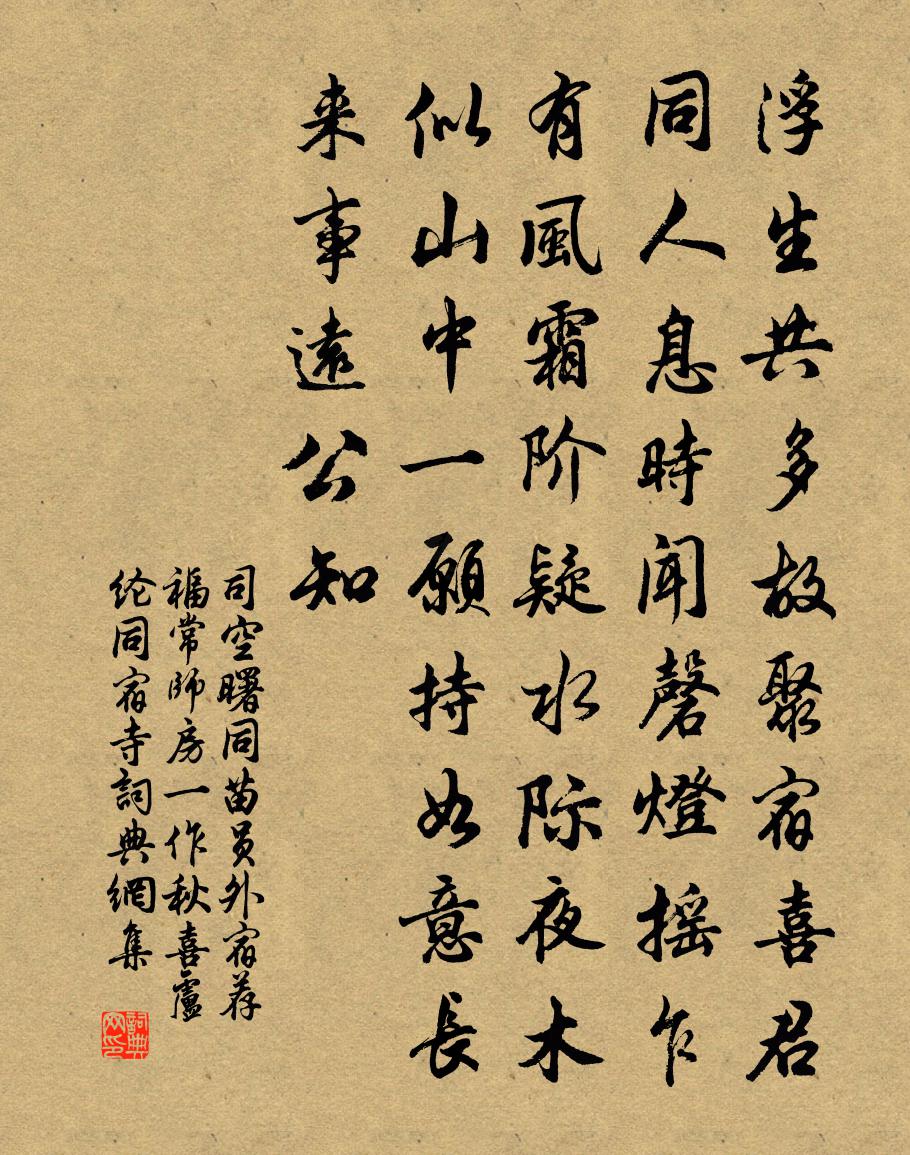 浮生共多故聚宿喜君
同人息時闻磬燈摇乍
有風霜阶疑水际夜木
似山中一願持如意長
来事遠公知
司空曙同苗员外宿荐
福常師房一作秋喜盧
纶同宿寺詞典網集
詞典
网印